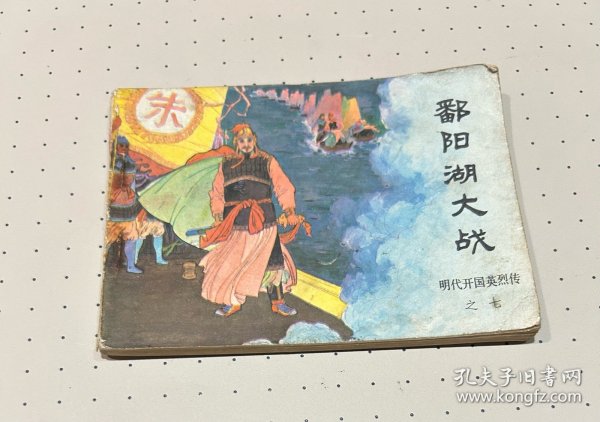 朱
鄱阳湖大战
明代开国英烈传
之七
孔夫子旧书网
www.kongfz.com